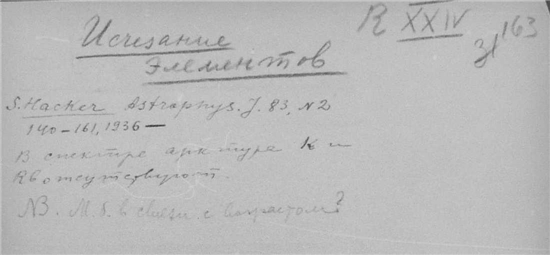 R XXIV
163
Исчезание
элементов
S. Hacker Astrophys. J. 83, N2
140–161, 1936 —
В спектре арктура K и
Rb отсутствуют.
NB. М.б. в связи с возрастом?